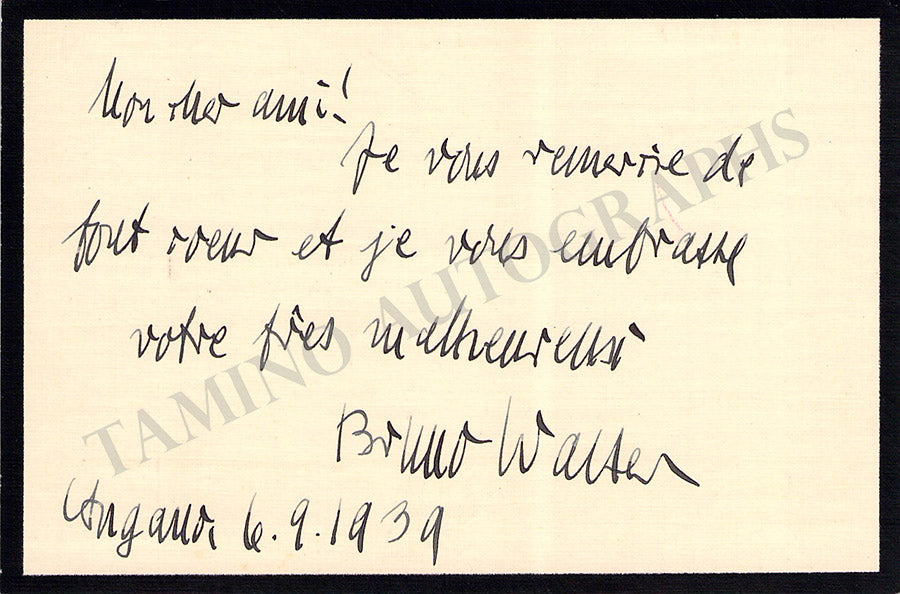 Mon cher ami!
Je vous remercie de
tout coeur et je vous embrasse
votre très malheureux
Bruno Walter
Lugano, 6.9.1939
TAMINO AUTOGRAPHS